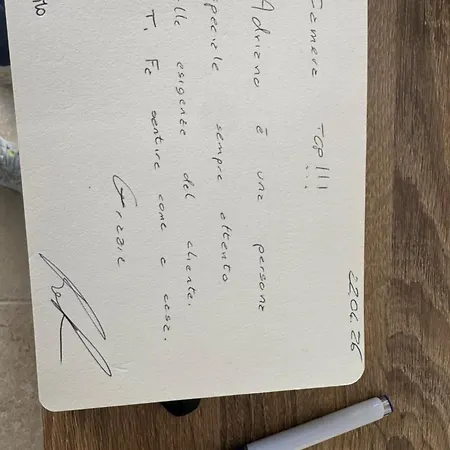 22.06.26
Camera TOP!!!
Adriano è una persona
speciale sempre attento
alle esigenze del cliente.
Ti fa sentire come a casa.
Grazie